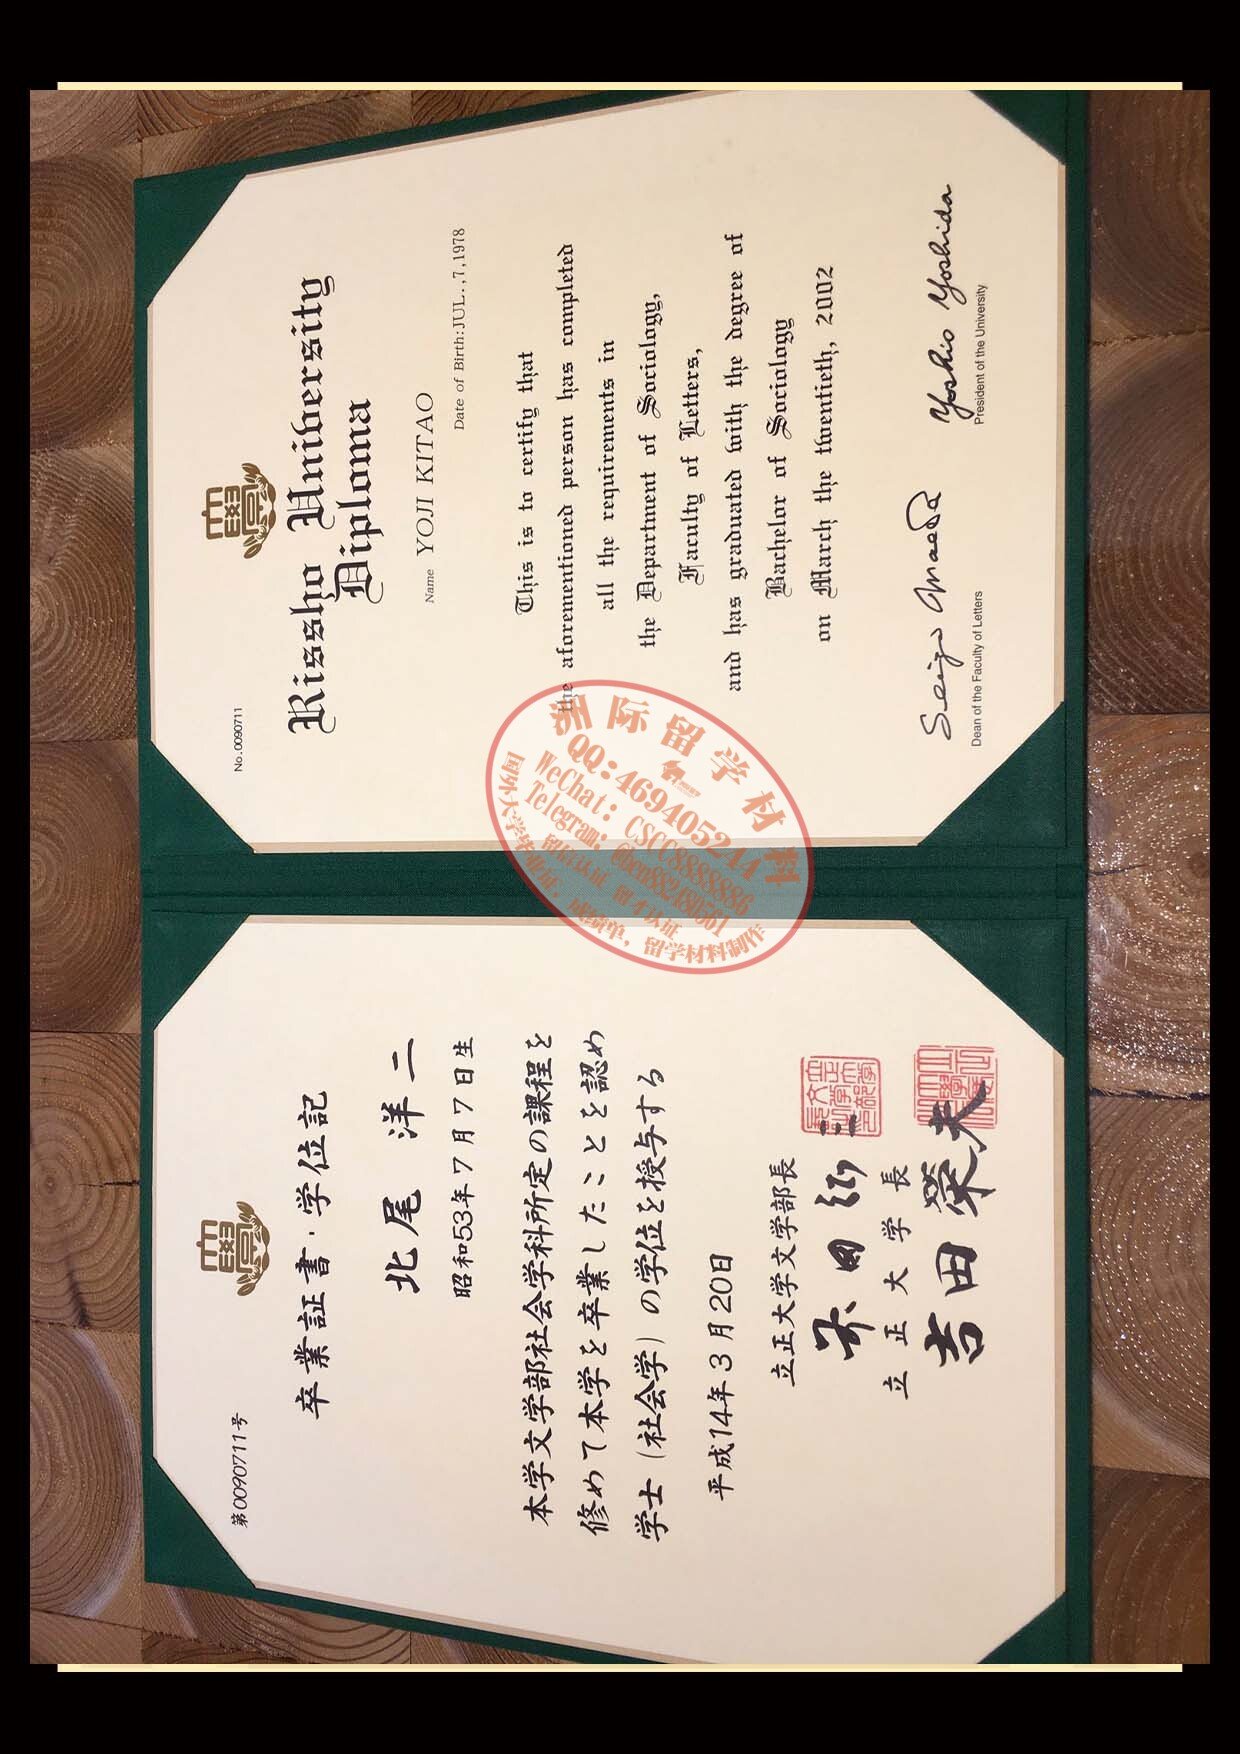 第0090711号
卒業証書・学位記
北尾洋二
昭和53年7月7日生
本学文学部社会学科所定の課程を
修めて本学を卒業したことを認め
学士（社会学）の学位を授与する
平成14年3月20日
立正大学文学部長
立正大学長
吉田榮夫
No.0090711
Rissho University
Diploma
Name YOJI KITAO
Date of Birth:JUL.,7,1978
This is to certify that
the aforementioned person has completed
all the requirements in
the Department of Sociology,
Faculty of Letters,
and has graduated with the degree of
Bachelor of Sociology
on March the twentieth, 2002
Seigo Maeda
Dean of the Faculty of Letters
Yoshio Yoshida
President of the University
洲际留学材料
QQ:469405244
WeChat: CSCC8888886
留信认证 留才认证
国外大学毕业证，成绩单，留学材料制作